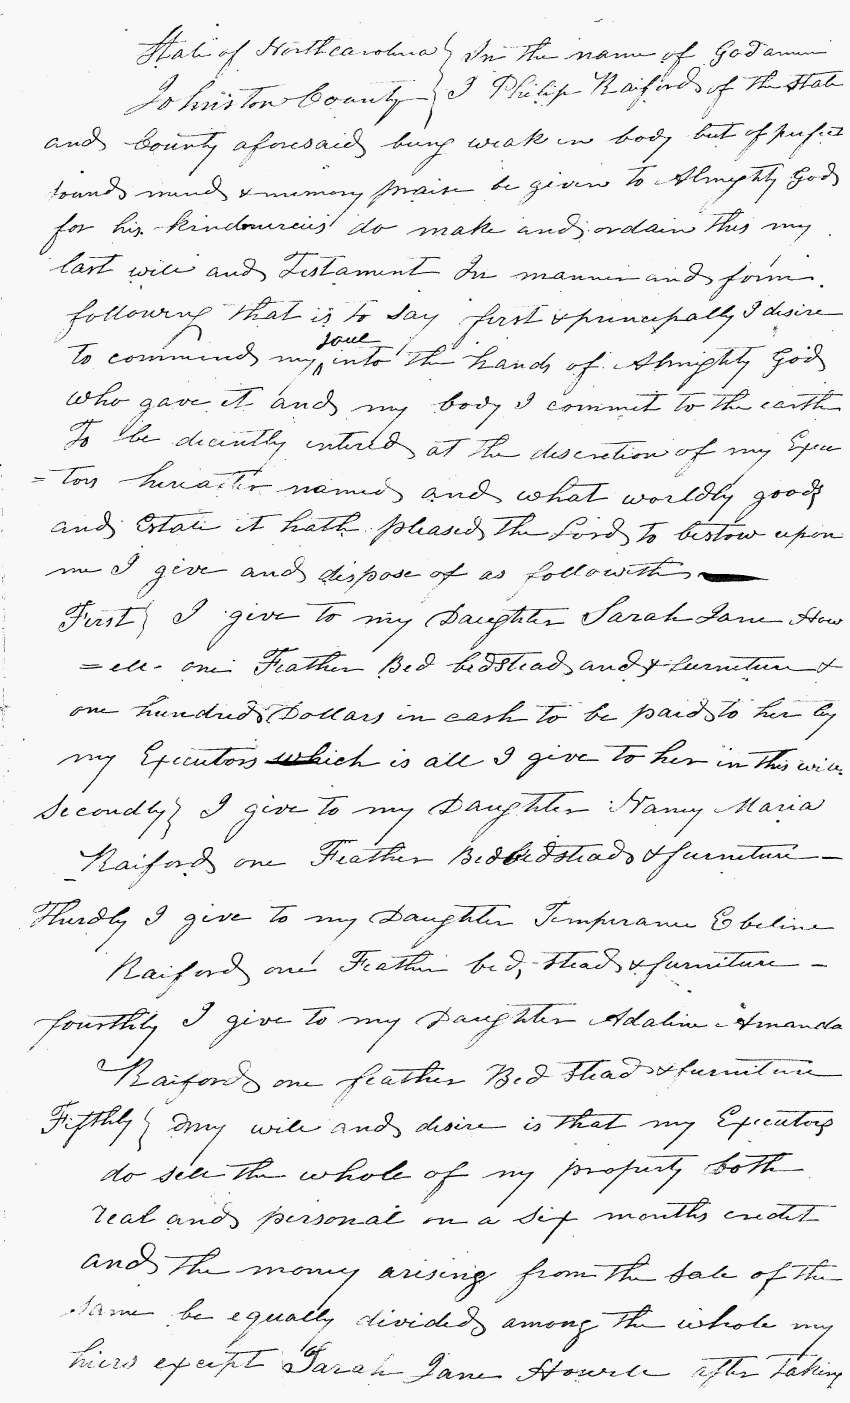 State of Northcarolina } In the name of God amen
Johnston County } I Philip Raiford of the State
and County aforesaid being weak in body but of perfect
sound mind & memory praise be given to Almighty God
for his kindmercies do make and ordain this my
last will and Testament In manner and form
following that is to say first & principally I desire
to commend my soul into the hands of Almighty God
who gave it and my body I commit to the earth
To be decently entered at the discretion of my Execu
=tors hereafter named and what worldly goods
and Estate it hath pleased the Lord to bestow upon
me I give and dispose of as followeth
First } I give to my Daughter Sarah Jane How
=ell one Feather Bed bedstead and & furniture &
one hundred Dollars in cash to be paid to her by
my Executors which is all I give to her in this will
Secondly } I give to my Daughter Nancy Maria
Raiford one Feather Bed bedstead & furniture —
Thirdly I give to my Daughter Temperance Ebeline
Raiford one Feather bed, stead & furniture —
fourthly I give to my Daughter Adaline Amanda
Raiford one feather Bed stead & furniture
Fifthly } my will and desire is that my Executors
do sell the whole of my property both
real and personal on a six months credit
and the money arising from the sale of the
same be equally divided among the whole my
hiers except Sarah Jane Howell after taking